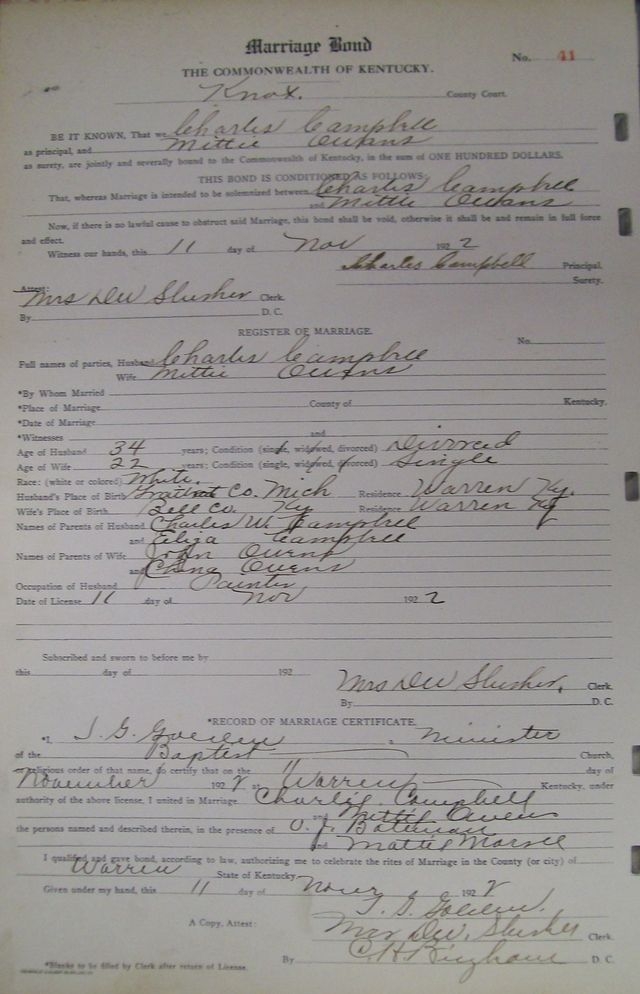 Marriage Bond
No. 41
THE COMMONWEALTH OF KENTUCKY.
Knox. County Court.
BE IT KNOWN, That we Charles Campbell
as principal, and Mittie Owens
as surety, are jointly and severally bound to the Commonwealth of Kentucky, in the sum of ONE HUNDRED DOLLARS.
THIS BOND IS CONDITIONED AS FOLLOWS:
That, whereas Marriage is intended to be solemnized between Charles Campbell
and Mittie Owens
Now, if there is no lawful cause to obstruct said Marriage, this bond shall be void, otherwise it shall be and remain in full force
and effect.
Witness our hands, this 11 day of Nov 1922
Charles Campbell Principal.
Surety.
Attest:
Mrs DW Slusher Clerk.
By D. C.
REGISTER OF MARRIAGE.
No.
Full names of parties, Husband Charles Campbell
Wife Mittie Owens
*By Whom Married
*Place of Marriage County of Kentucky.
*Date of Marriage
*Witnesses and
Age of Husband 34 years; Condition (single, widowed, divorced) Divorced
Age of Wife 22 years; Condition (single, widowed, divorced) Single
Race: (white or colored) White.
Husband's Place of Birth Co. Mich Residence Warren Ky.
Wife's Place of Birth Bell Co. Ky Residence Warren Ky
Names of Parents of Husband Charles W. Campbell
and Eliza Campbell
Names of Parents of Wife John Owens
and Owens
Occupation of Husband Painter
Date of License 11 day of Nov 1922
Subscribed and sworn to before me by
this day of 192
Mrs DW Slusher, Clerk.
By D. C.
*RECORD OF MARRIAGE CERTIFICATE.
*I, Minister
of the Baptest Church,
or religious order of that name, do certify that on the 11 day of
November 1922 at Warren Kentucky, under
authority of the above license, I united in Marriage Charlie Campbell
and Mittie Owens
the persons named and described therein, in the presence of O. J. Bateman
and Mattie
I qualified and gave bond, according to law, authorizing me to celebrate the rites of Marriage in the County (or city) of
Warren State of Kentucky
Given under my hand, this 11 day of 1922
A Copy, Attest:
Mrs DW. Slusher Clerk.
By C. H Bingham D. C.
*Blanks to be filled by Clerk after return of License.